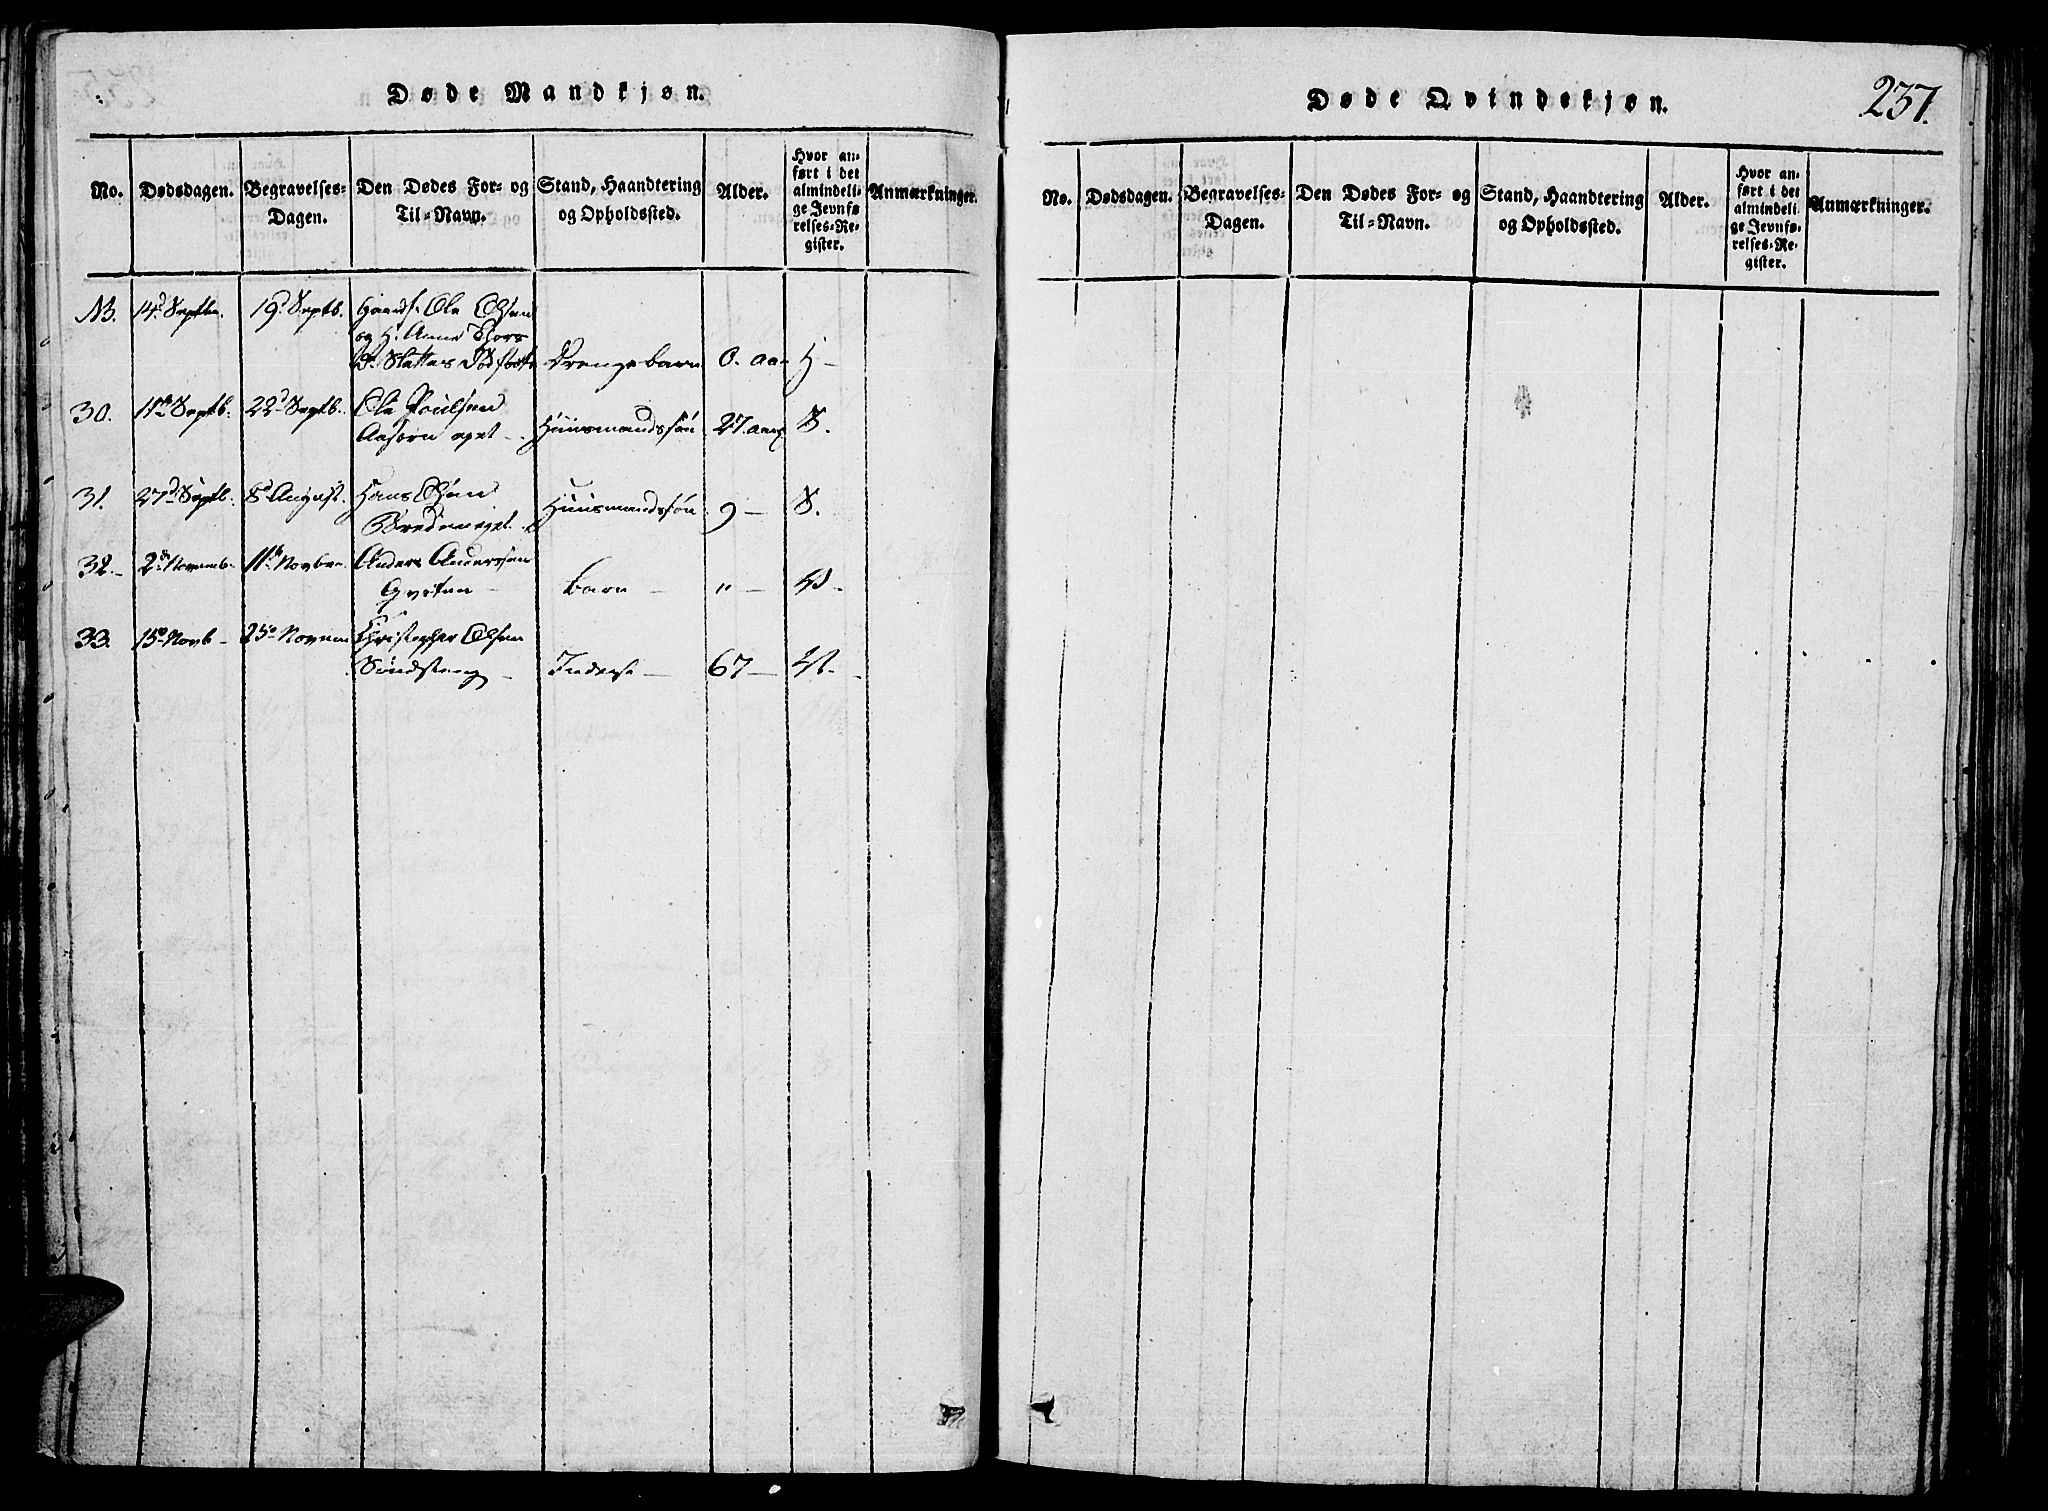 Døde Mandkjøn.
No. Dødsdagen. Begravelses-Dagen. Den Dødes For- og Til-Navn. Stand, Haandtering og Opholdssted. Alder. Hvor anført i det almindelige Jevnførelses-Register. Anmærkninger.
14d Septbr. 19d Septb. Ole Olsen
og H. Anne Thors
D. Drengebarn 0. aar H -
30. 11te Septb. 22d Septb. Ole Poulsen
eyet Huusmandssøn 27. aar S.
31. 27d Septb. 8d August. Hans Olsen
eyet Huusmandssøn 9 - S.
32. 2d Novemb. 11te Novber. Anders Andersen
Qvisten - Barn - " -
33. 15de Novb - 25de Novem Christopher Olsen
Sundsteng - Inderst - 67 -
Døde Qvindekjøn. 237.
No. Dødsdagen. Begravelses-Dagen. Den Dødes For- og Til-Navn. Stand, Haandtering og Opholdssted. Alder. Hvor anført i det almindelige Jevnførelses-Register. Anmærkninger.